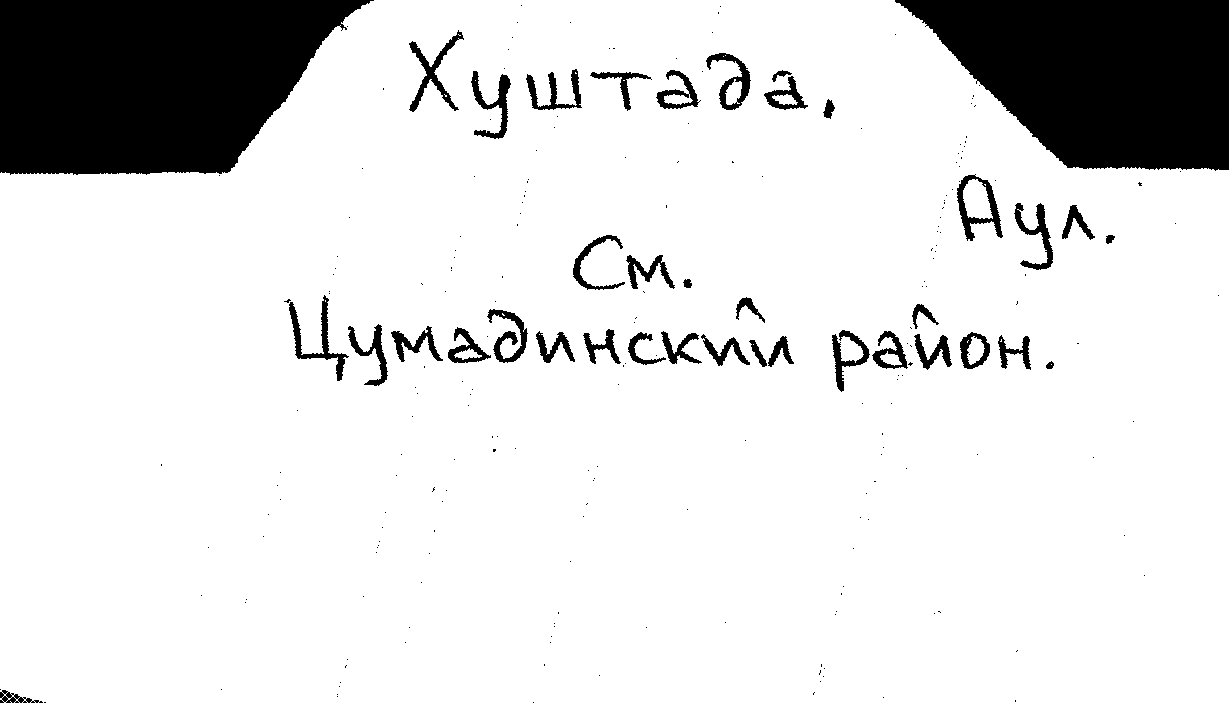 Хуштада.
Аул.
См.
Цумадинский район.